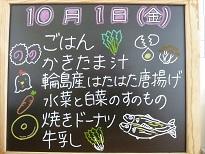 10月1日(金)
ごはん
かきたま汁
輪島産はたはた唐揚げ
水菜と白菜のすのもの
焼きドーナツ
牛乳